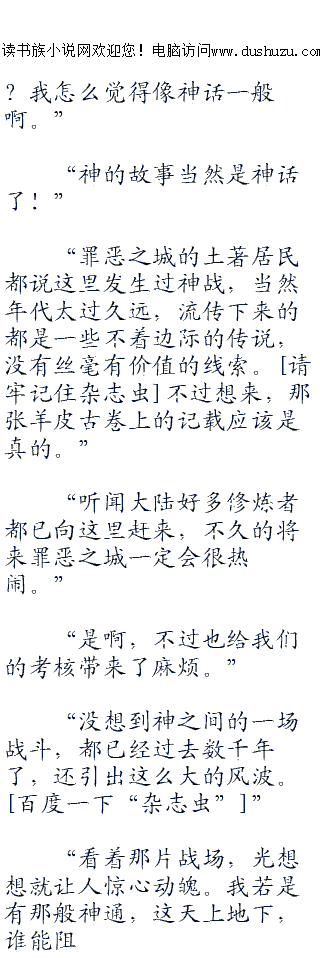 读书族小说网欢迎您！电脑访问www.dushuzu.com
？我怎么觉得像神话一般
啊。”
“神的故事当然是神话
了！”
“罪恶之城的土著居民
都说这里发生过神战，当然
年代太过久远，流传下来的
都是一些不着边际的传说，
没有丝毫有价值的线索。[请
牢记住杂志虫]不过想来，那
张羊皮古卷上的记载应该是
真的。”
“听闻大陆好多修炼者
都已向这里赶来，不久的将
来罪恶之城一定会很热
闹。”
“是啊，不过也给我们
的考核带来了麻烦。”
“没想到神之间的一场
战斗，都已经过去数千年
了，还引出这么大的风波。
[百度一下“杂志虫”]”
“看着那片战场，光想
想就让人惊心动魄。我若是
有那般神通，这天上地下，
谁能阻